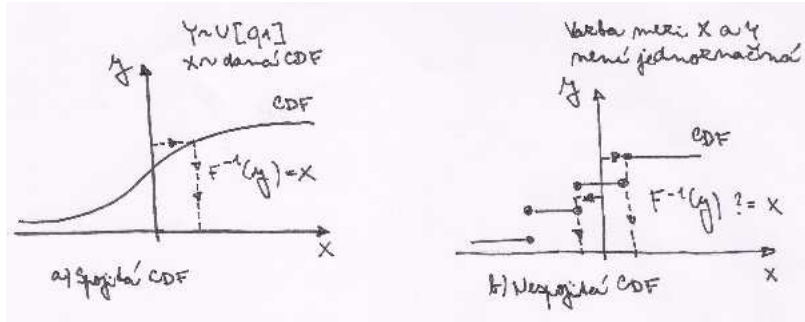 Y~U[0,1]
X~ daná CDF
y
CDF
F⁻¹(y)=X
X
a) Spojitá CDF
Vazba mezi X a Y
není jednoznačná
y
CDF
F⁻¹(y) ?= X
X
b) Nespojitá CDF